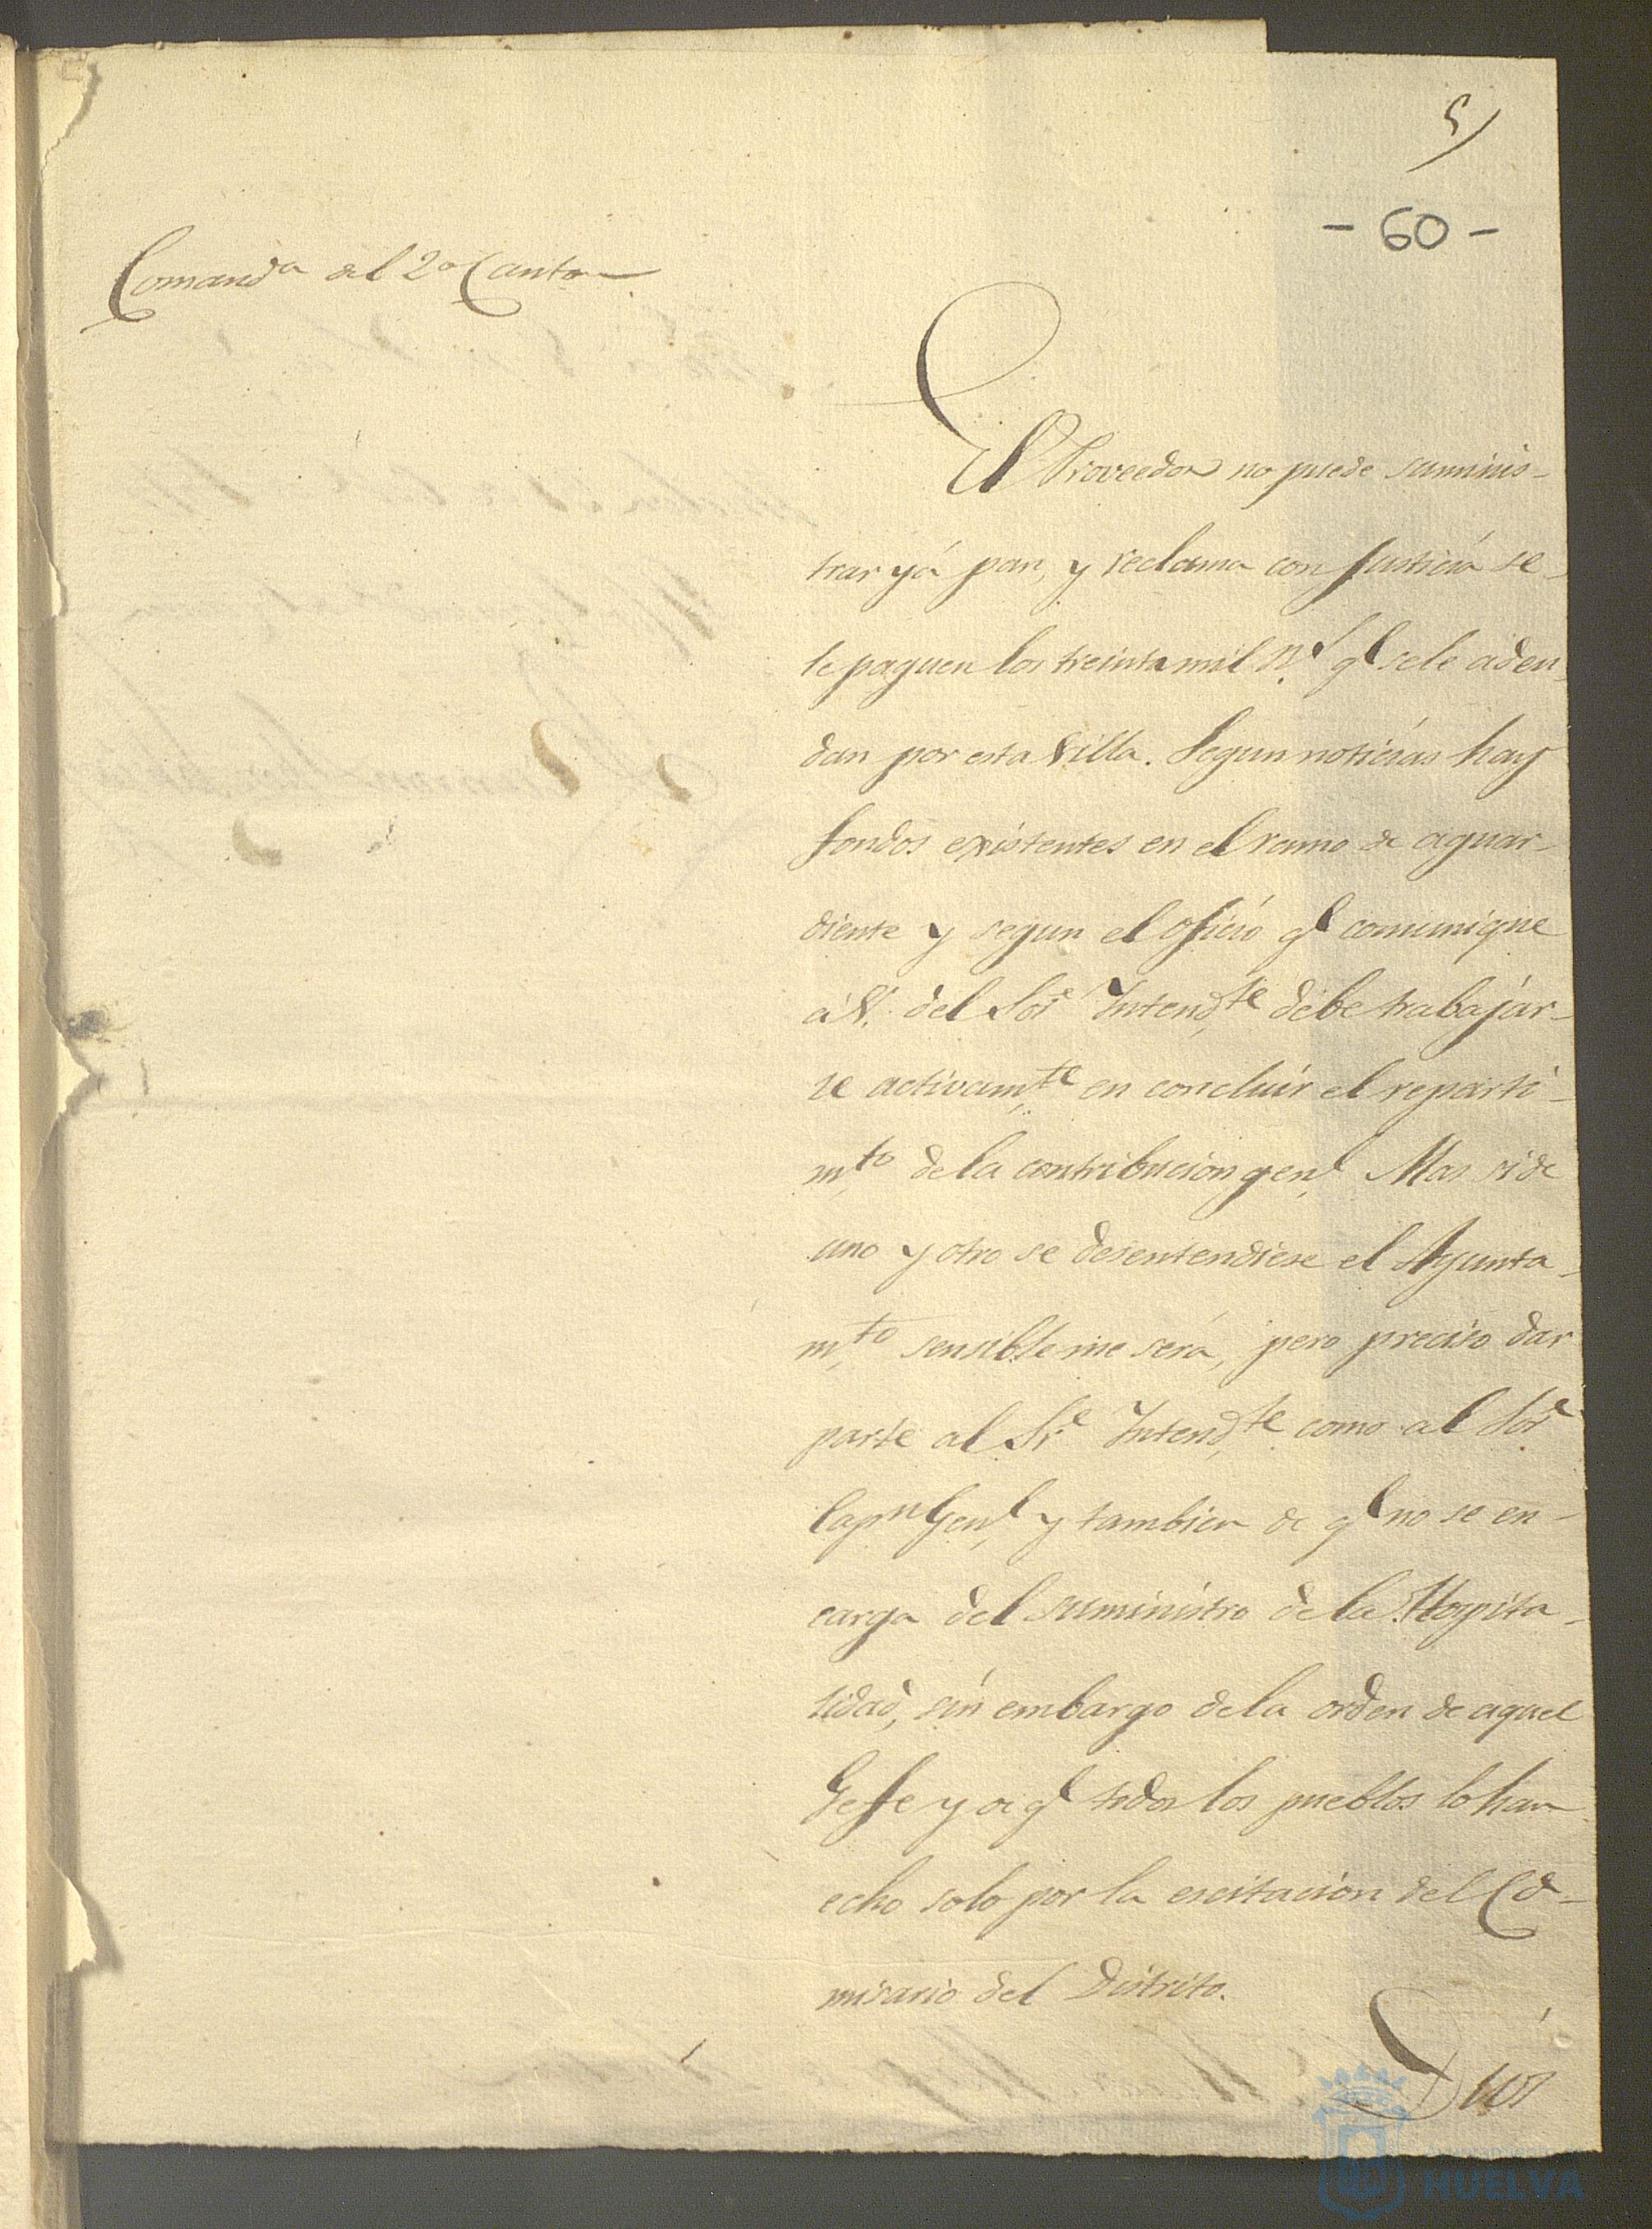 5/
- 60 -
Comand.a del 2.o Canton
El Proveedor no puede suminis-
trar yá pan, y reclama con Justicia se-
le paguen los treinta mil r.s q.e sele adeu-
dan por esta Villa. Segun noticias hay
fondos existentes en el ramo de aguar-
diente y segun el oficio q.e comunique
á V. del Sor. Intend.te debe trabajar-
se activam.te en concluir el reparti-
m.to de la contribucion gen.l Mas si de
uno y otro se desentendiese el Ayunta-
m.to sensible me será, pero preciso dar
parte al Sr. Intend.te como al Sor.
Cap.n Gen.l y tambien de q.e no se en-
carga del suministro de la Hospita-
lidad, sin embargo de la orden de aquel
Gefe y de q.e todos los pueblos lo han
echo solo por la excitacion del Co-
misario del Distrito.
Dios
Ayuntamiento de
HUELVA